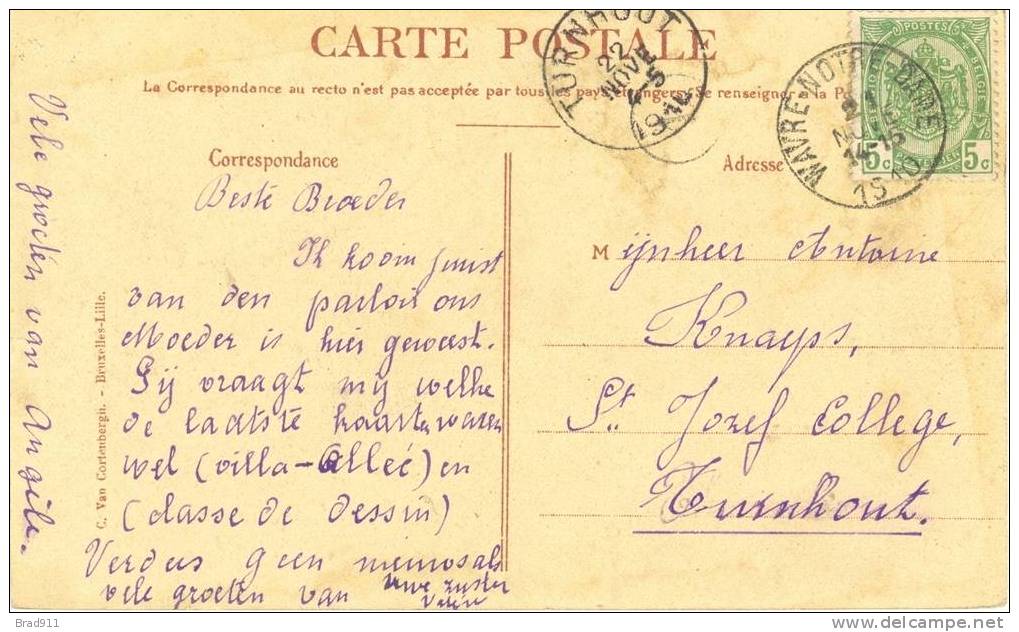 CARTE POSTALE
La Correspondance au recto n'est pas acceptée par tous les pays étrangers. Se renseigner à la
TURNHOUT
22
NOVE
5
1910
WAVRE-NOTRE-DAME
NOVE
14-15
1910
POSTES
5c 5c
Correspondance
Adresse
Beste Broeder
Ik koom juist
van den parloir ons
Moeder is hier geweest.
Gij vraagt mij welke
de laatste kaarten waren
wel (villa-Alleé) en
(classe de dessin)
Verders geen
vele groeten van uwe zuster
Vele groeten van Angèle.
C. Van Cortenbergh. - Bruxelles-Lille.
Mijnheer Antoine
Knaeps,
St. Jozef College,
Turnhout.
Brad911
delcampe.net